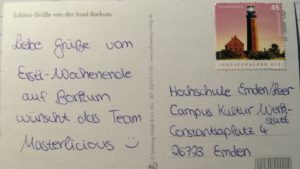 Schöne Grüße von der Insel Borkum
Liebe Grüße vom
Ersti-Wochenende
auf Borkum
wünscht das Team
Masterlicious
45
GREIFSWALDER OIE
Hochschule Emden/Leer
Campus Kultur Werk-
statt
Constantiaplatz 4
26723 Emden